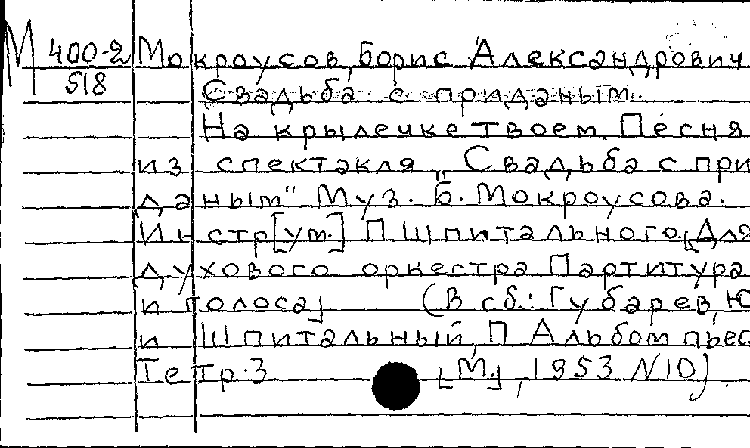 М 400-2 Мокроусов, Борис Александрович
518 Свадьба с приданым.
На крылечке твоем. Песня
из спектакля „Свадьба с при
даным" Муз. Б. Мокроусова.
Инстр[ум.] П. Шпитального [Для
духового оркестра Партитура
и голоса] (В сб.: Губарев, Ю
и Шпитальный, П Альбом пьес
Тетр. 3 [М.], 1953 N 10).